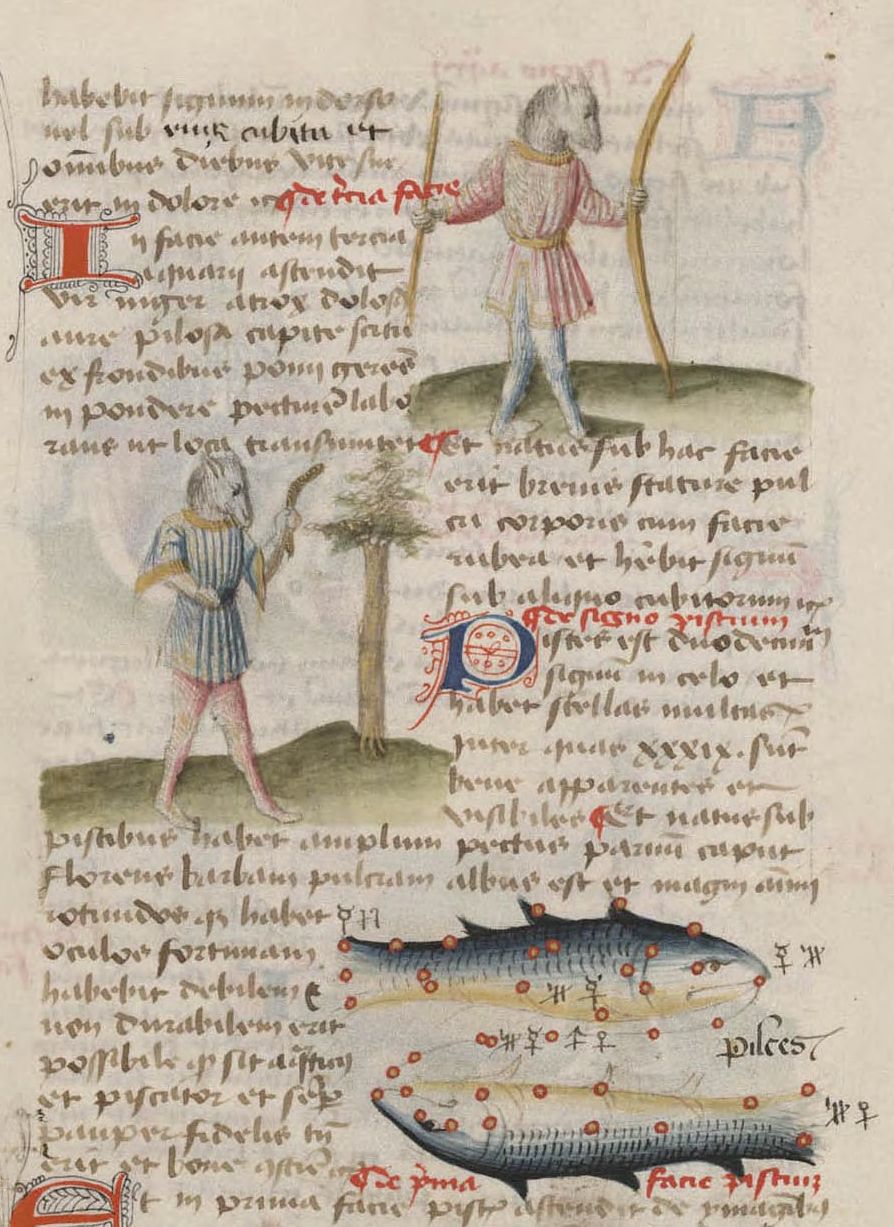 habebit signum in dorso
uel sub eius cubitu et
omnibus diebus vite sue
erit in dolore
de tercia facie
In facie autem tercia
aquarii ascendit
vir niger atrox dolosa
aure pilosa capite
ex frondibus pomi gerens
in pondere labo
rans ut loca
Et natus sub hac facie
erit brevis stature pul
cri corporis cum facie
rubea et hebit signum
sub aliquo cubitorum
de signo piscium
Pisces est duodecimum
signum in celo et
habet stellas multas
inter quas xxxix. sunt
bene apparentes et
visibiles Et natus sub
piscibus habet amplum pectus parvum caput
florens barbam pulcram albus est et magni animi
rotundos habet
oculos fortunam
habebit debilem
non durabilem erit
possibile quod sit
et piscator et semper
pauper fidelis
erit et bone
pisces
de prima facie piscium
Et in prima facie ascendit de